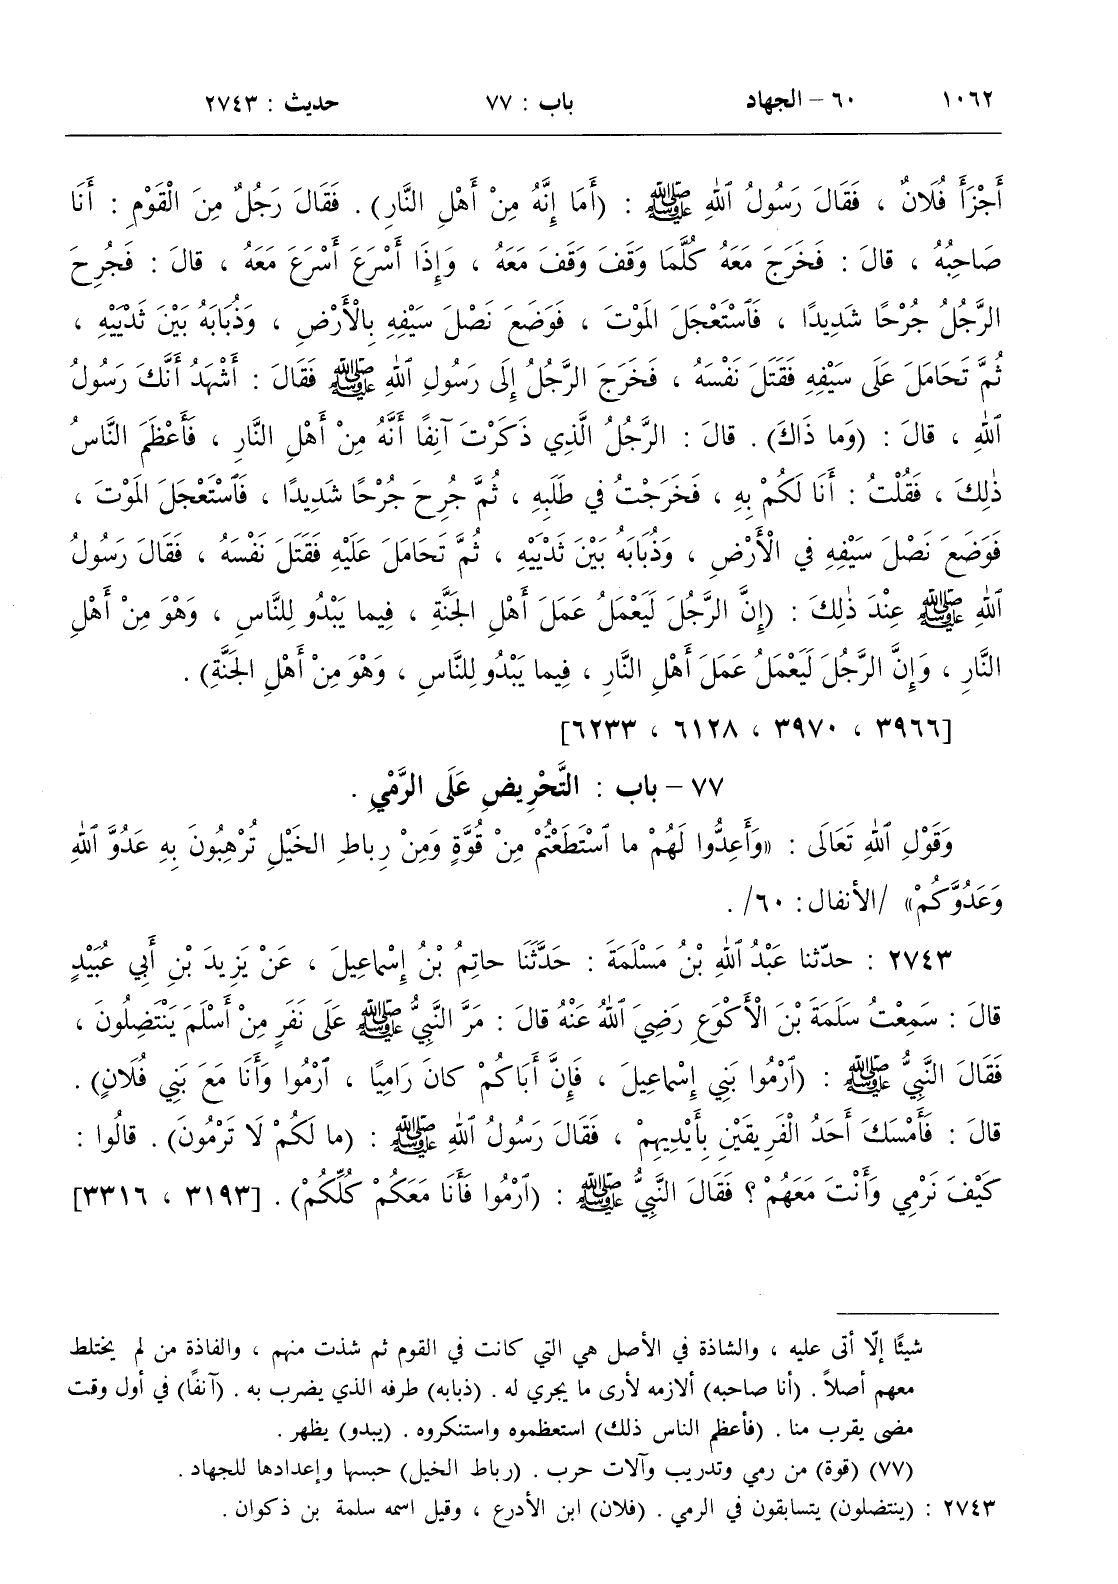 ١٠٦٢ ٦٠ – الجهاد باب : ٧٧ حديث : ٢٧٤٣
أَجْزَأَ فُلَانٌ ، فَقَالَ رَسُولُ ٱللهِ ﷺ : (أَمَا إِنَّهُ مِنْ أَهْلِ النَّارِ) . فَقَالَ رَجُلٌ مِنَ الْقَوْمِ : أَنَا
صَاحِبُهُ ، قالَ : فَخَرَجَ مَعَهُ كُلَّمَا وَقَفَ وَقَفَ مَعَهُ ، وَإِذَا أَسْرَعَ أَسْرَعَ مَعَهُ ، قالَ : فَجُرِحَ
الرَّجُلُ جُرْحًا شَدِيدًا ، فَٱسْتَعْجَلَ المَوْتَ ، فَوَضَعَ نَصْلَ سَيْفِهِ بِالْأَرْضِ ، وَذُبَابَهُ بَيْنَ ثَدْيَيْهِ ،
ثُمَّ تَحَامَلَ عَلَى سَيْفِهِ فَقَتَلَ نَفْسَهُ ، فَخَرَجَ الرَّجُلُ إِلَى رَسُولِ ٱللهِ ﷺ فَقَالَ : أَشْهَدُ أَنَّكَ رَسُولُ
ٱللهِ ، قالَ : (وَما ذَاكَ) . قالَ : الرَّجُلُ الَّذِي ذَكَرْتَ آنِفًا أَنَّهُ مِنْ أَهْلِ النَّارِ ، فَأَعْظَمَ النَّاسُ
ذٰلِكَ ، فَقُلْتُ : أَنَا لَكُمْ بِهِ ، فَخَرَجْتُ في طَلَبِهِ ، ثُمَّ جُرِحَ جُرْحًا شَدِيدًا ، فَٱسْتَعْجَلَ المَوْتَ ،
فَوَضَعَ نَصْلَ سَيْفِهِ في الْأَرْضِ ، وَذُبَابَهُ بَيْنَ ثَدْيَيْهِ ، ثُمَّ تَحَامَلَ عَلَيْهِ فَقَتَلَ نَفْسَهُ ، فَقَالَ رَسُولُ
ٱللهِ ﷺ عِنْدَ ذٰلِكَ : (إِنَّ الرَّجُلَ لَيَعْمَلُ عَمَلَ أَهْلِ الجَنَّةِ ، فِيما يَبْدُو لِلنَّاسِ ، وَهْوَ مِنْ أَهْلِ
النَّارِ ، وَإِنَّ الرَّجُلَ لَيَعْمَلُ عَمَلَ أَهْلِ النَّارِ ، فِيما يَبْدُو لِلنَّاسِ ، وَهْوَ مِنْ أَهْلِ الجَنَّةِ) .
[٣٩٦٦ ، ٣٩٧٠ ، ٦١٢٨ ، ٦٢٣٣]
٧٧ – باب : التَّحْرِيضِ عَلَى الرَّمْيِ .
وَقَوْلِ ٱللهِ تَعَالَى : «وَأَعِدُّوا لَهُمْ ما ٱسْتَطَعْتُمْ مِنْ قُوَّةٍ وَمِنْ رِباطِ الخَيْلِ تُرْهِبُونَ بِهِ عَدُوَّ ٱللهِ
وَعَدُوَّكُمْ» /الأنفال : ٦٠/ .
٢٧٤٣ : حدّثنا عَبْدُ ٱللهِ بْنُ مَسْلَمَةَ : حَدَّثَنَا حاتِمُ بْنُ إِسْماعِيلَ ، عَنْ يَزِيدَ بْنِ أَبِي عُبَيْدٍ
قالَ : سَمِعْتُ سَلَمَةَ بْنَ الْأَكْوَعِ رَضِيَ ٱللهُ عَنْهُ قالَ : مَرَّ النَّبِيُّ ﷺ عَلَى نَفَرٍ مِنْ أَسْلَمَ يَنْتَضِلُونَ ،
فَقَالَ النَّبِيُّ ﷺ : (ٱرْمُوا بَنِي إِسْماعِيلَ ، فَإِنَّ أَبَاكُمْ كانَ رَامِيًا ، ٱرْمُوا وَأَنَا مَعَ بَنِي فُلَانٍ) .
قالَ : فَأَمْسَكَ أَحَدُ الْفَرِيقَيْنِ بِأَيْدِيهِمْ ، فَقَالَ رَسُولُ ٱللهِ ﷺ : (ما لَكُمْ لَا تَرْمُونَ) . قالُوا :
كَيْفَ نَرْمِي وَأَنْتَ مَعَهُمْ ؟ فَقَالَ النَّبِيُّ ﷺ : (ٱرْمُوا فَأَنَا مَعَكُمْ كُلِّكُمْ) . [٣١٩٣ ، ٣٣١٦]
شيئًا إلّا أتى عليه ، والشاذة في الأصل هي التي كانت في القوم ثم شذت منهم ، والفاذة من لم يختلط
معهم أصلاً . (أنا صاحبه) ألازمه لأرى ما يجري له . (ذبابه) طرفه الذي يضرب به . (آنفًا) في أول وقت
مضى يقرب منا . (فأعظم الناس ذلك) استعظموه واستنكروه . (يبدو) يظهر .
(٧٧) (قوة) من رمي وتدريب وآلات حرب . (رباط الخيل) حبسها وإعدادها للجهاد .
٢٧٤٣ : (ينتضلون) يتسابقون في الرمي . (فلان) ابن الأدرع ، وقيل اسمه سلمة بن ذكوان .